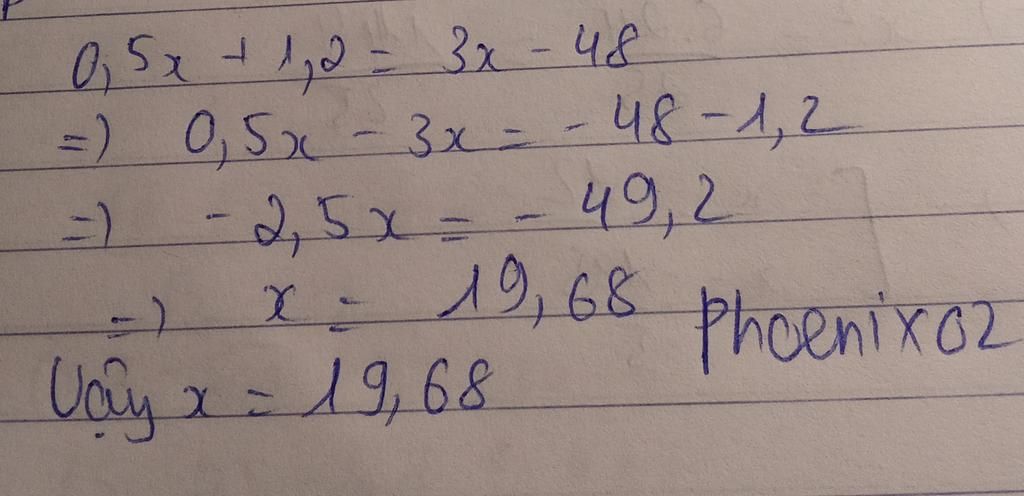 0,5x + 1,2 = 3x - 48
=) 0,5x - 3x = - 48 - 1,2
=) - 2,5x = - 49,2
=) x = 19,68
Phoenix02
Vậy x = 19,68